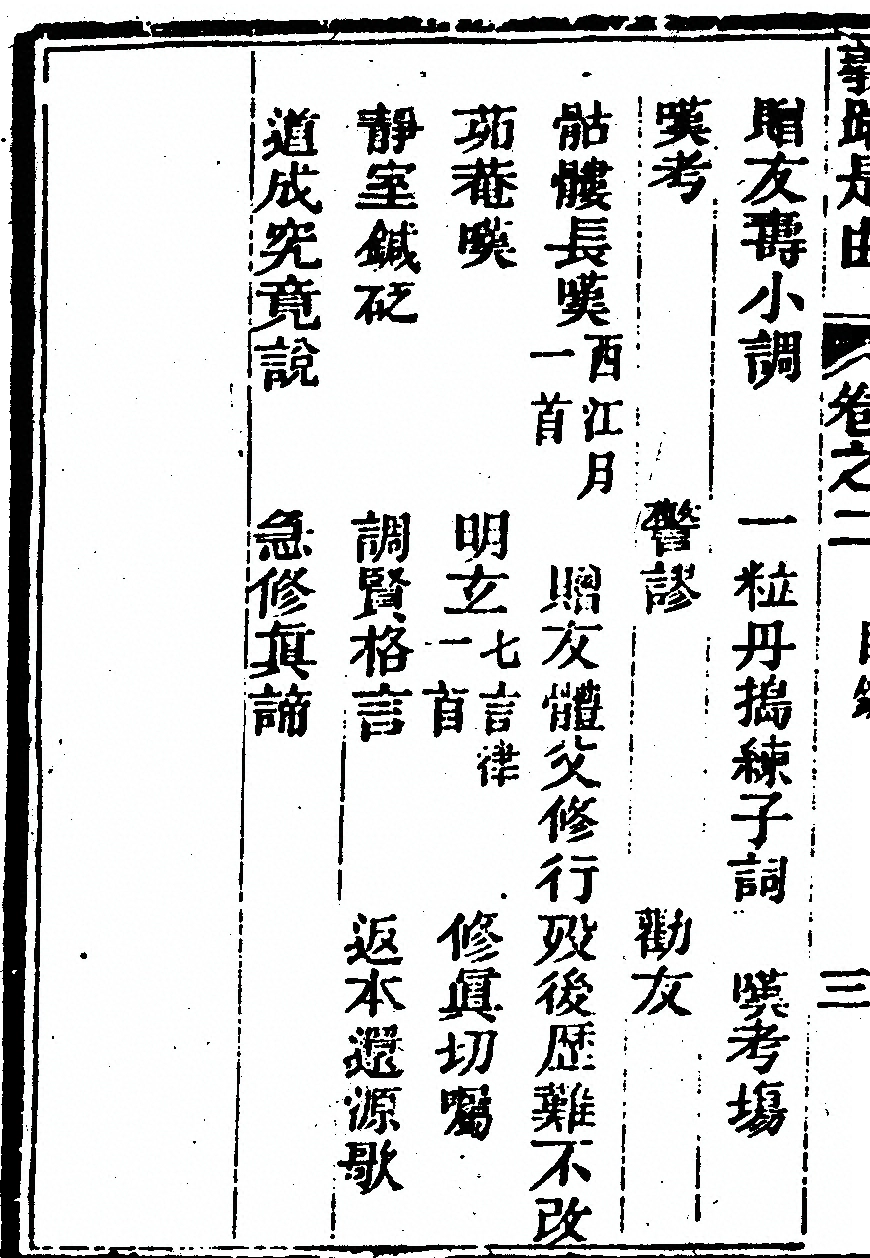 卷之二 三
贈友壽小調 一粒丹搗練子詞 嘆考塲
嘆考 警謬 勸友
骷髏長嘆西江月一首 贈友體父修行歿後歷難不改
茆菴嘆 明玄七言律一首 修眞切囑
靜室鍼砭 調賢格言 返本還源歌
道成究竟說 急修眞諦